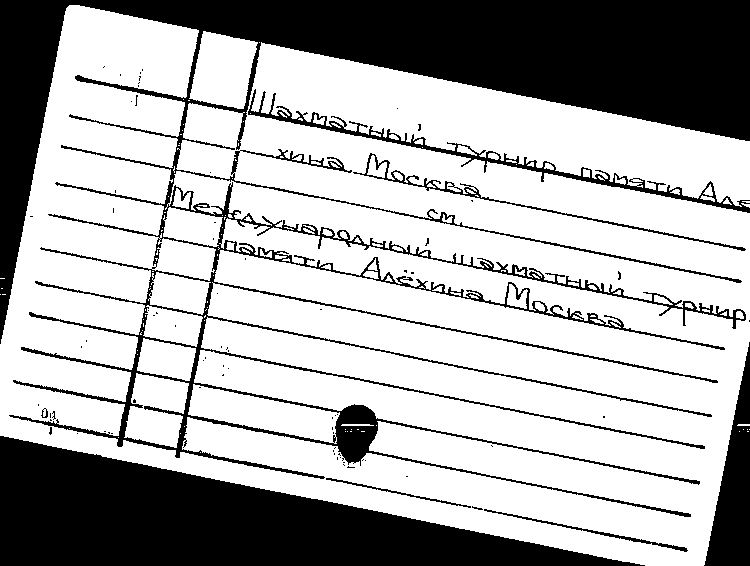 Шахматный турнир памяти Але
хина. Москва.
см.
Международный шахматный турнир
памяти Алёхина. Москва.